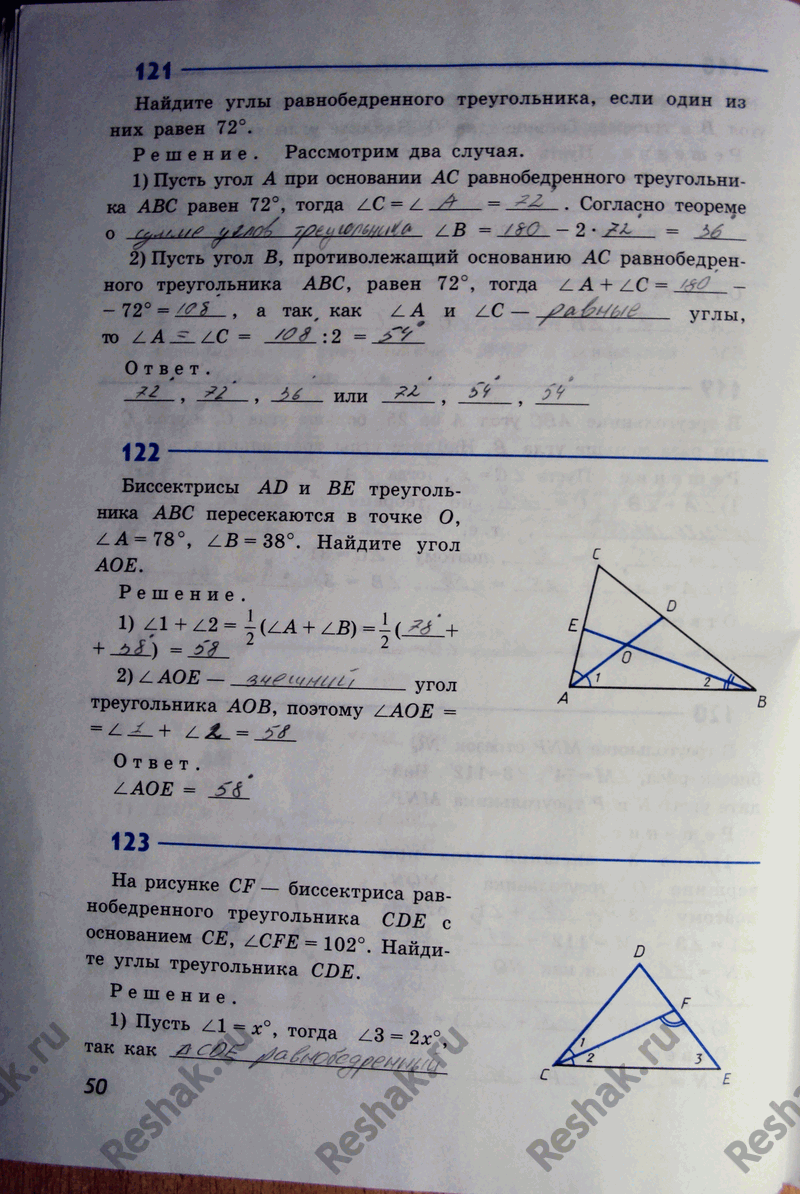 121
Найдите углы равнобедренного треугольника, если один из
них равен 72°.
Решение. Рассмотрим два случая.
1) Пусть угол A при основании AC равнобедренного треугольни-
ка ABC равен 72°, тогда ∠C = ∠ A = 72. Согласно теореме
о сумме углов треугольника ∠B = 180 − 2 · 72 = 36°
2) Пусть угол B, противолежащий основанию AC равнобедрен-
ного треугольника ABC, равен 72°, тогда ∠A + ∠C = 180° −
− 72° = 108°, а так как ∠A и ∠C — равные углы,
то ∠A = ∠C = 108 : 2 = 54°
Ответ.
72°, 72°, 36° или 72°, 54°, 54°
122
Биссектрисы AD и BE треуголь-
ника ABC пересекаются в точке O,
∠A = 78°, ∠B = 38°. Найдите угол
AOE.
Решение.
1) ∠1 + ∠2 = 1/2 (∠A + ∠B) = 1/2 (78° +
+ 38°) = 58
2) ∠AOE — внешний угол
треугольника AOB, поэтому ∠AOE =
= ∠ 1 + ∠ 2 = 58
Ответ.
∠AOE = 58°
C
D
E
O
1
2
A
B
123
На рисунке CF — биссектриса рав-
нобедренного треугольника CDE с
основанием CE, ∠CFE = 102°. Найди-
те углы треугольника CDE.
Решение.
1) Пусть ∠1 = x°, тогда ∠3 = 2x°,
так как ΔCDE равнобедренный
D
F
1
2
3
C
E
50
Reshak.ru
Reshak.ru
Reshak.ru
Reshak.ru